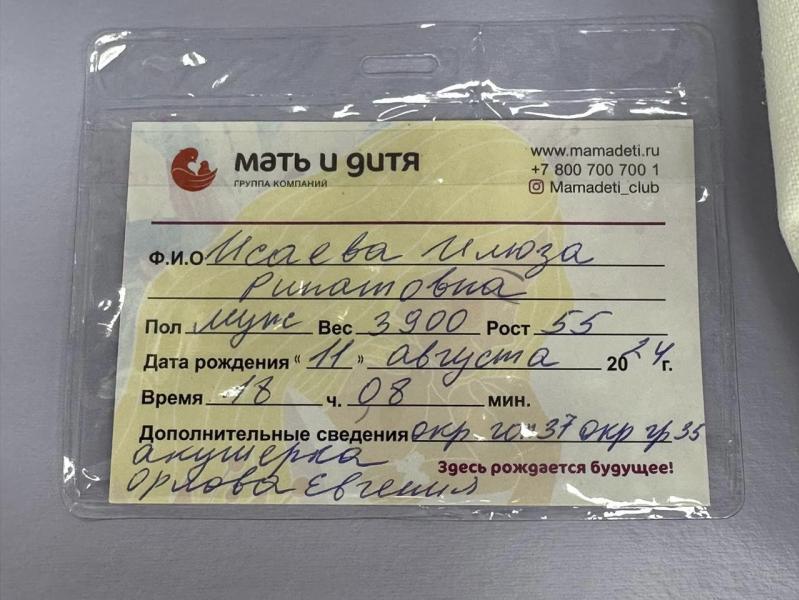 мать и дитя
ГРУППА КОМПАНИЙ
www.mamadeti.ru
+7 800 700 700 1
Mamadeti_club
Ф.И.О Исаева Илюза
Ринатовна
Пол муж Вес 3900 Рост 55
Дата рождения "11" августа 2024г.
Время 18 ч. 08 мин.
Дополнительные сведения окр гол 37 окр гр 35
акушерка
Здесь рождается будущее!
Орлова Евгения